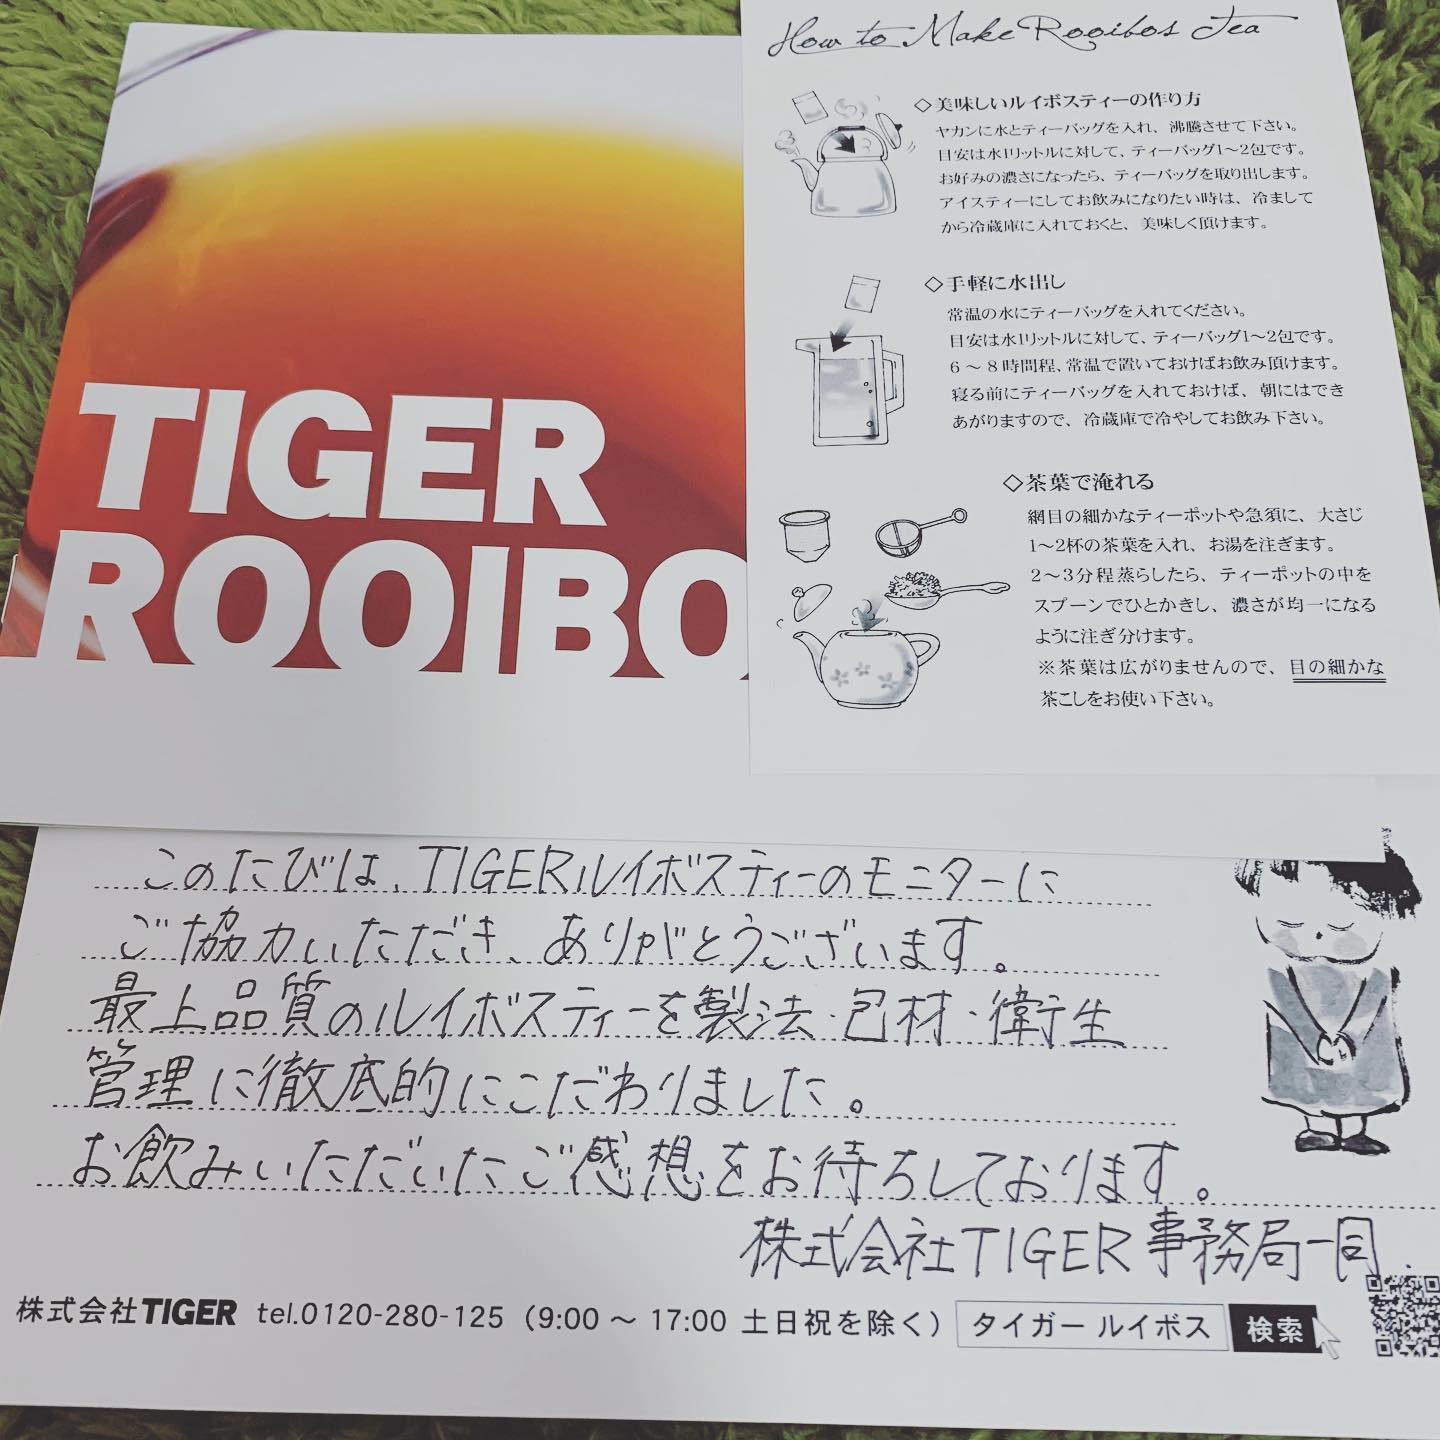 TIGER
ROOIBO
How to Make Rooibos Tea
◇美味しいルイボスティーの作り方
ヤカンに水とティーバッグを入れ、沸騰させて下さい。
目安は水1リットルに対して、ティーバッグ1〜2包です。
お好みの濃さになったら、ティーバッグを取り出します。
アイスティーにしてお飲みになりたい時は、冷まして
から冷蔵庫に入れておくと、美味しく頂けます。
◇手軽に水出し
常温の水にティーバッグを入れてください。
目安は水1リットルに対して、ティーバッグ1〜2包です。
6〜8時間程、常温で置いておけばお飲み頂けます。
寝る前にティーバッグを入れておけば、朝にはでき
あがりますので、冷蔵庫で冷やしてお飲み下さい。
◇茶葉で淹れる
網目の細かなティーポットや急須に、大さじ
1〜2杯の茶葉を入れ、お湯を注ぎます。
2〜3分程蒸らしたら、ティーポットの中を
スプーンでひとかきし、濃さが均一になる
ように注ぎ分けます。
※茶葉は広がりませんので、目の細かな
茶こしをお使い下さい。
このたびは、TIGERルイボスティーのモニターに
ご協力いただき、ありがとうございます。
最上品質のルイボスティーを製法・包材・衛生
管理に徹底的にこだわりました。
お飲みいただいたご感想をお待ちしております。
株式会社TIGER事務局一同.
株式会社TIGER tel.0120-280-125（9:00〜17:00 土日祝を除く） タイガー ルイボス 検索